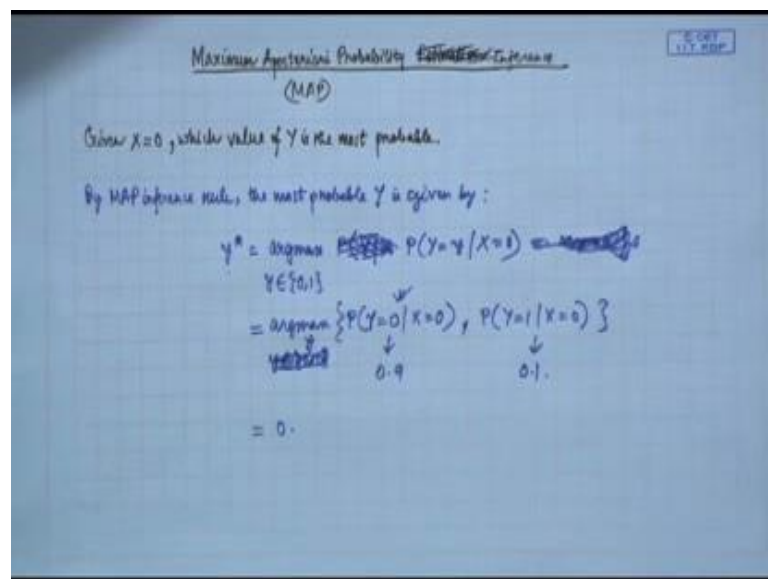 © CET
I.I.T. KGP
Maximum Aposteriori Probability Inference
(MAP)
Given X=0, which value of Y is the most probable.
By MAP inference rule, the most probable Y is given by :
y* = argmax P(Y=y/X=0)
Y∈{0,1}
= argmax {P(Y=0/X=0), P(Y=1/X=0)}
y
↓ ↓
0.9 0.1.
= 0.